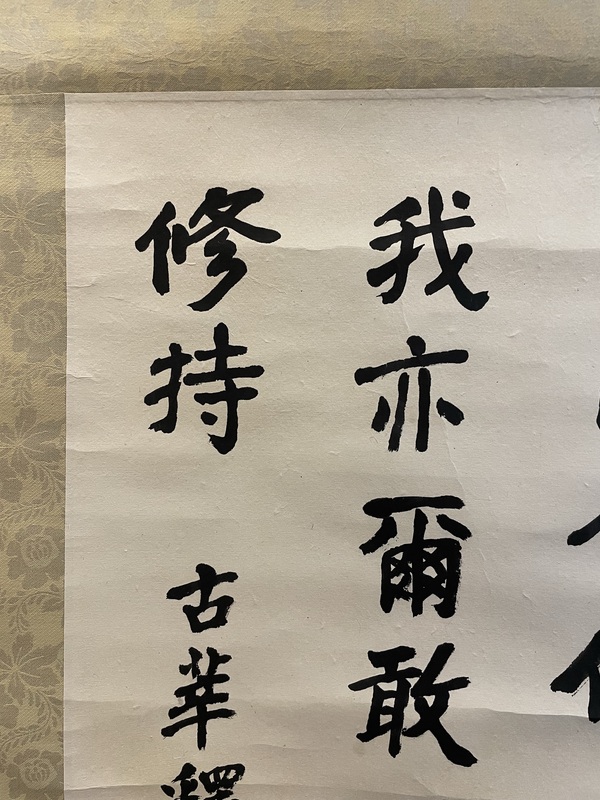 我亦爾敢
修持
古莘釋